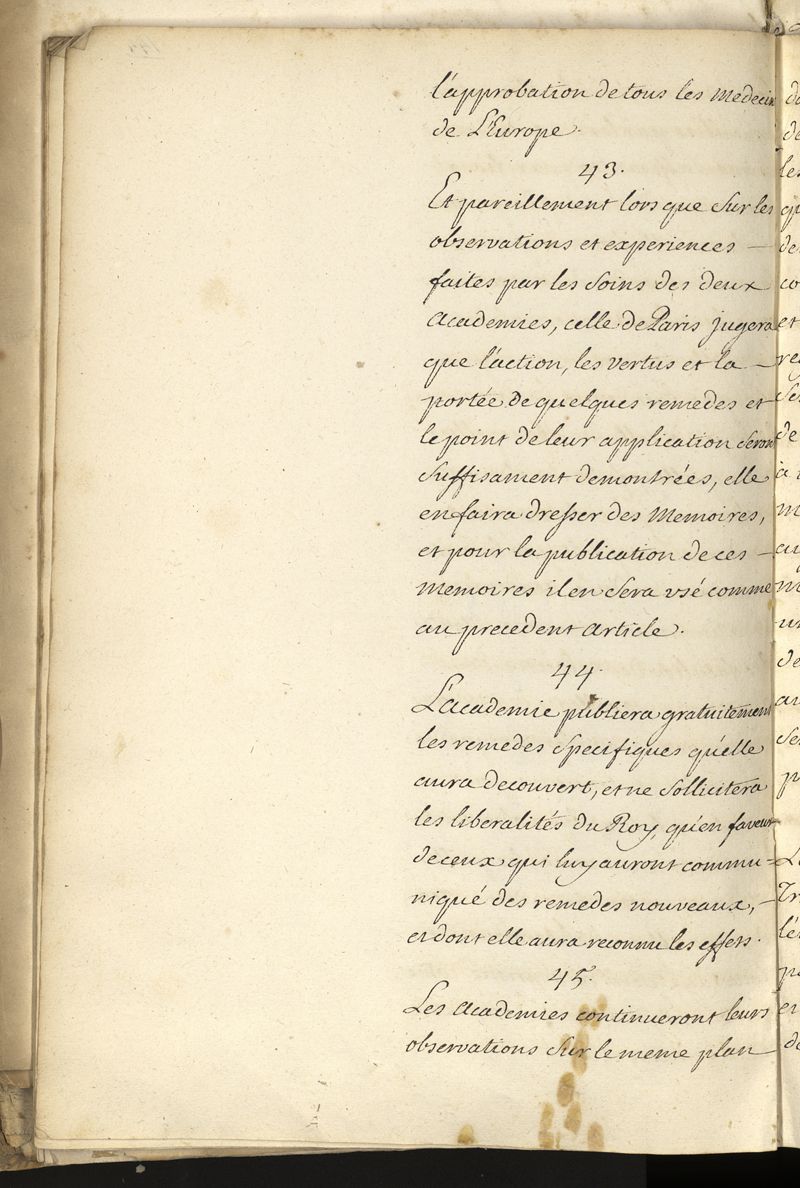 l'approbation de tous les Medecin
de L'Europe.
43.
Et pareillement lors que sur les
observations et experiences —
faites par les soins des deux
Academies, celle de Paris jugera
que l'action, les vertus et la —
portée de quelques remedes et
le point de leur application seront
suffisament demontrées, elle
en faira dresser des Memoires,
et pour la publication de ces —
Memoires il en sera usé comme
au precedent article.
44.
L'academie publiera gratuitement
les remedes specifiques qu'elle
aura decouvert, et ne sollicitera
les liberalités du Roy, qu'en faveur
de ceux qui luy auront commu=
niqué des remedes nouveaux, —
et dont elle aura reconnu les effets.
45.
Les academies continueront leurs
observations sur le meme plan